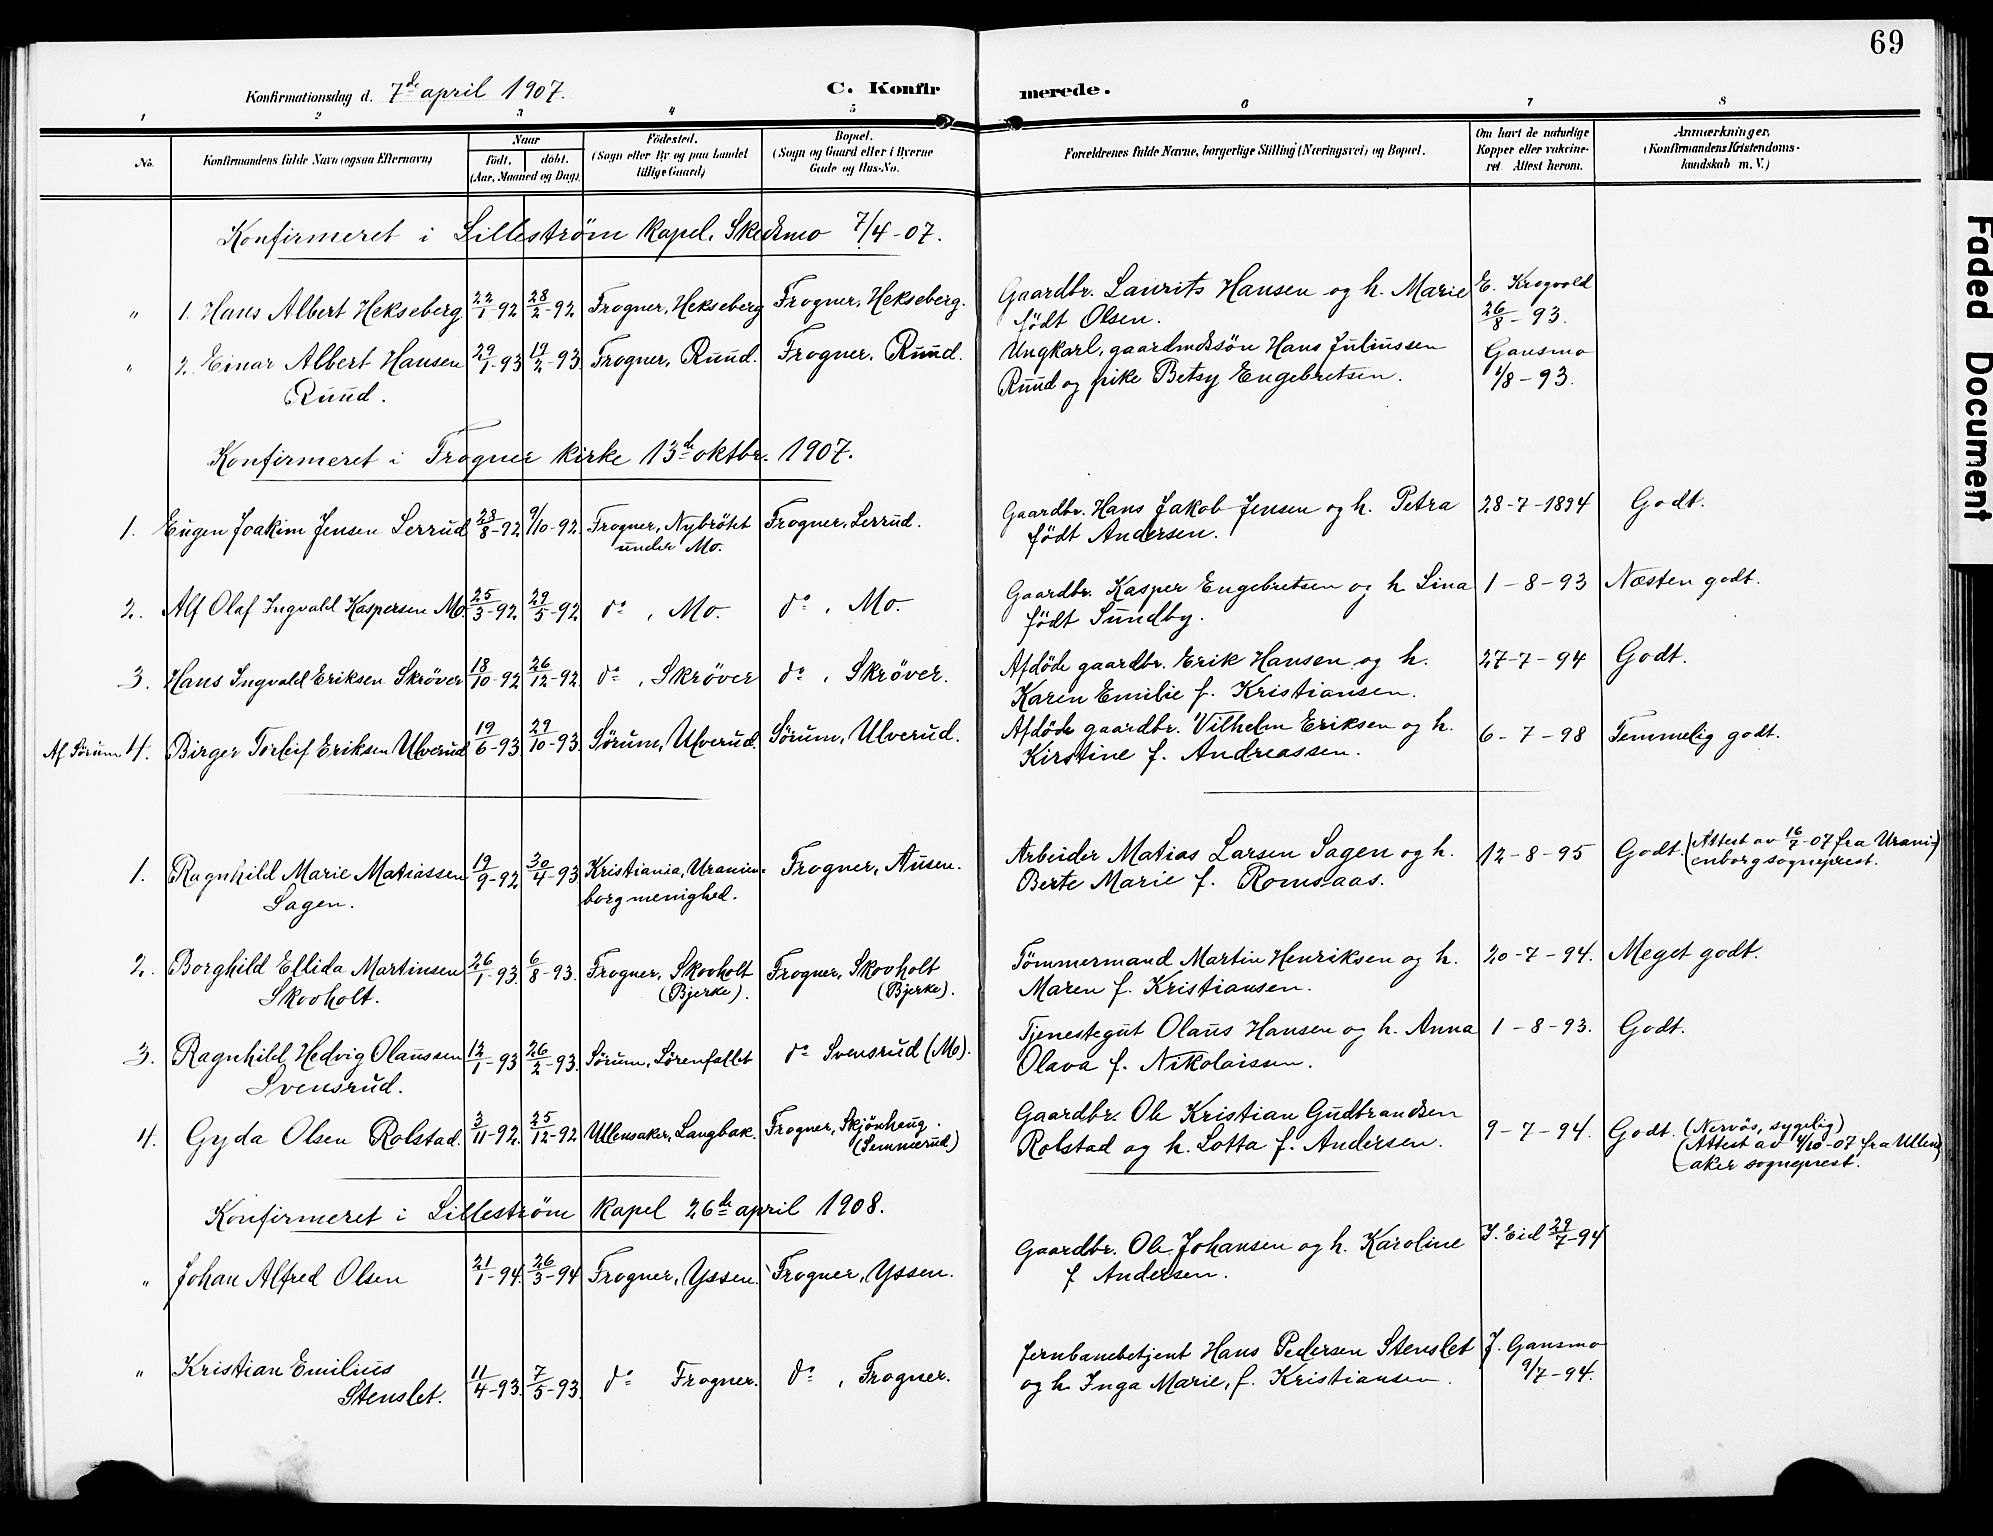 69
Konfirmationsdag d. 7de april 1907. C. Konfirmerede.
1 2 3 4 5 6 7 8
No. Konfirmandens fulde Navn (ogsaa Efternavn) Naar født. døbt. (Aar, Maaned og Dag). Fødested. (Sogn eller By og paa Landet tillige Gaard) Bopæl. (Sogn og Gaard eller i Byerne Gade og Hus-No. Forældrenes fulde Navne, borgerlige Stilling (Næringsvei) og Bopæl. Om havt de naturlige Kopper eller vakcineret. Attest herom. Anmærkninger, (Konfirmandens Kristendomskundskab m. V.)
Konfirmeret i Lillestrøm kapel, Skedsmo 7/4-07.
" 1. Hans Albert Hekseberg 22/1-92 28/2-92 Frogner, Hekseberg Frogner, Hekseberg. Gaardbr. Laurits Hansen og h. Marie E. Krogvold
født Olsen. 26/8-93.
" 2. Einar Albert Hansen 29/1-93 19/2-93 Frogner, Ruud. Frogner, Ruud. Ungkarl, gaardmdssøn Hans Juliussen Gansmo
Ruud. Ruud og pike Betsy Engebretsen. 1/8-93.
Konfirmeret i Frogner kirke 13de oktbr. 1907.
1. Eugen Joakim Jensen Lerrud 28/8-92 9/10-92. Frogner, Nybrötet Frogner, Lerrud. Gaardbr. Hans Jakob Jensen og h. Petra 28-7-1894 Godt.
under Mo. født Andersen.
2. Alf Olaf Ingvald Kaspersen Mo. 25/3-92 29/5-92 do , Mo. do , Mo. Gaardbr. Kasper Engebretsen og h Lina 1-8-93 Næsten godt.
født Sundby.
3. Hans Ingvald Eriksen Skröver 18/10-92 26/12-92. do , Skröver do , Skröver. Afdöde gaardbr. Erik Hansen og h. 27-7-94 Godt.
Karen Emilie f. Kristiansen.
Af Sörum 4. Birger Torleif Eriksen Ulverud 19/6-93 29/10-93. Sörum, Ulverud. Sörum, Ulverud. Afdöde gaardbr. Vilhelm Eriksen og h. 6-7-98 Temmelig godt.
Kirstine f. Andreassen.
1. Ragnhild Marie Matiassen 19/9-92 30/4-93 Kristiania, Uranien- Frogner, Ausen. Arbeider Matias Larsen Sagen og h. 12-8-95 Godt. (Attest av 16/7-07 fra Urani-
Sagen. borg menighed. Berte Marie f. Romsaas. enborg sogneprest.
2. Borghild Ellida Martinsen 26/1-93. 6/8-93. Frogner, Skovholt Frogner, Skovholt Tömmermand Martin Henriksen og h. 20-7-94. Meget godt.
Skovholt. (Bjerke). (Bjerke). Maren f. Kristiansen.
3. Ragnhild Hedvig Olaussen 12/1-93 26/2-93. Sörum, Sörenfallet do Svensrud (Mo). Tjenestegut Olaus Hansen og h. Anna 1-8-93. Godt.
Svensrud. Olava f. Nikolaissen.
4. Gyda Olsen Rolstad. 3/11-92. 25/12-92 Ullensaker, Langbak. Frogner, Skjönhaug. Gaardbr. Ole Kristian Gudbrandsen 9-7-94. Godt. (Nervös, sygelig)
(Limmerud) Rolstad og h. Lotta f. Andersen. (Attest av 4/10-07 fra Ullens-
aker sogneprest.
Konfirmeret i Lillestrøm kapel 26de april 1908.
" Johan Alfred Olsen 21/1-94. 26/3-94 Frogner, Yssen. Frogner, Yssen. Gaardbr. Ole Johansen og h. Karoline J. Eid 29/7-94
f Andersen.
" Kristian Emilius 11/4-93. 7/5-93. do Frogner. do , Frogner. Jernbanebetjent Hans Pedersen Stenslet J. Gansmo
Stenslet. og h Inga Marie, f. Kristiansen. 9/7-94.
Faded Document